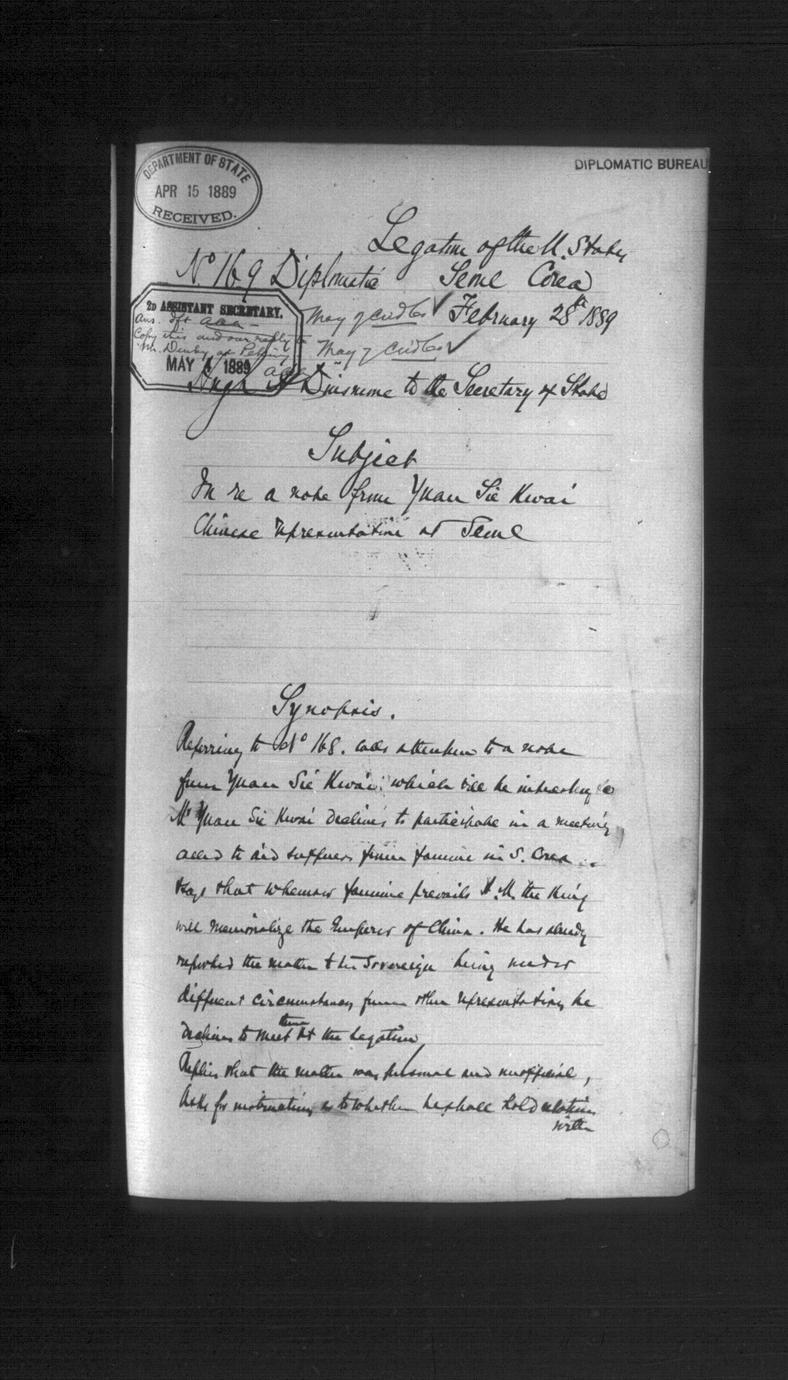 DEPARTMENT OF STATE
APR 15 1889
RECEIVED.
DIPLOMATIC BUREAU
Legation of the U. States
No 169 Diplomatic Seoul Corea
February 28th 1889
2D ASSISTANT SECRETARY.
Ans. dft aaa -
Copy this and our reply to
Mr. Denby at Peking
MAY 4 1889
May 7
May 7
Hugh A Dinsmore to the Secretary of State
Subject
In re a note from Yuan Sie Kwai
Chinese representative at Seoul
Synopsis.
Referring to No 168. calls attention to a note
from Yuan Sie Kwai, which will be interesting
Mr Yuan Sie Kwai declines to participate in a meeting
called to aid sufferers from famine in S. Corea
Says that whenever famine prevails H. M. the King
will memorialize the Emperor of China. He has already
reported the matter to his Sovereign being under
different circumstances from other representatives he
declines to meet them at the Legation,
Replies that the matter was personal and unofficial,
Asks for instructions as to whether he shall hold relations
with